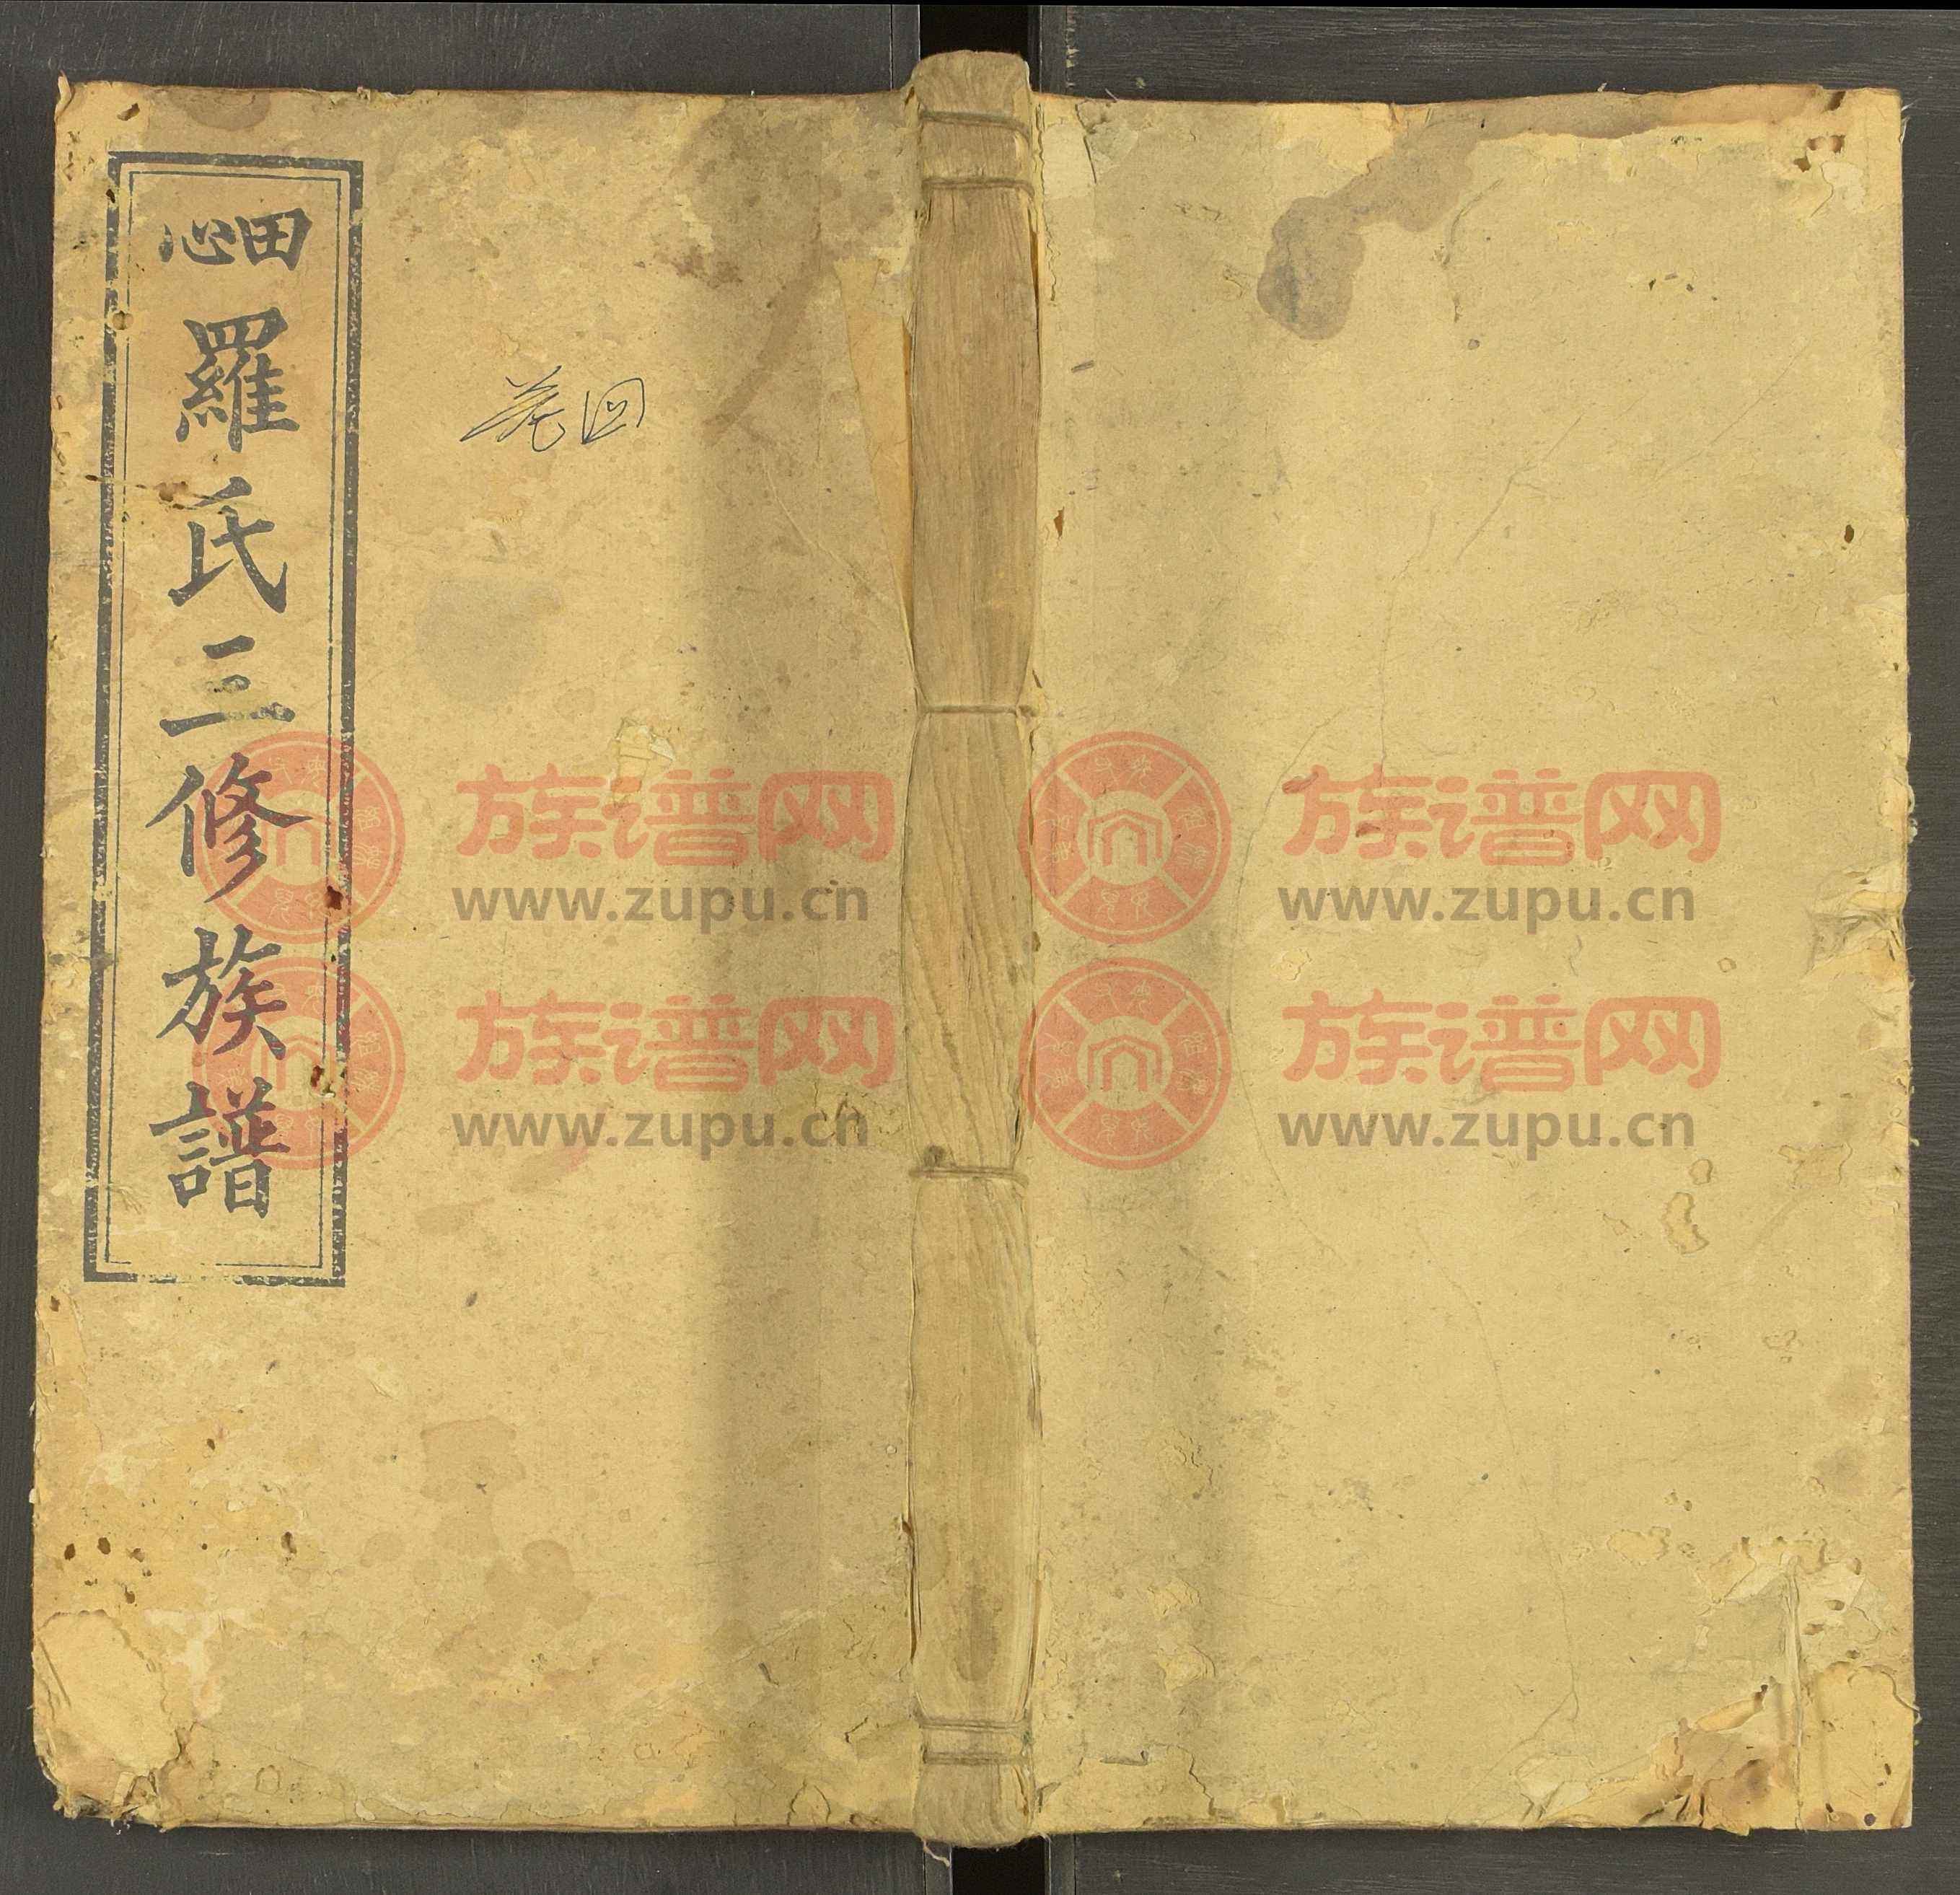 田心
羅氏三修族譜
卷四
族谱网
www.zupu.cn
族谱网
www.zupu.cn
族谱网
www.zupu.cn
族谱网
www.zupu.cn